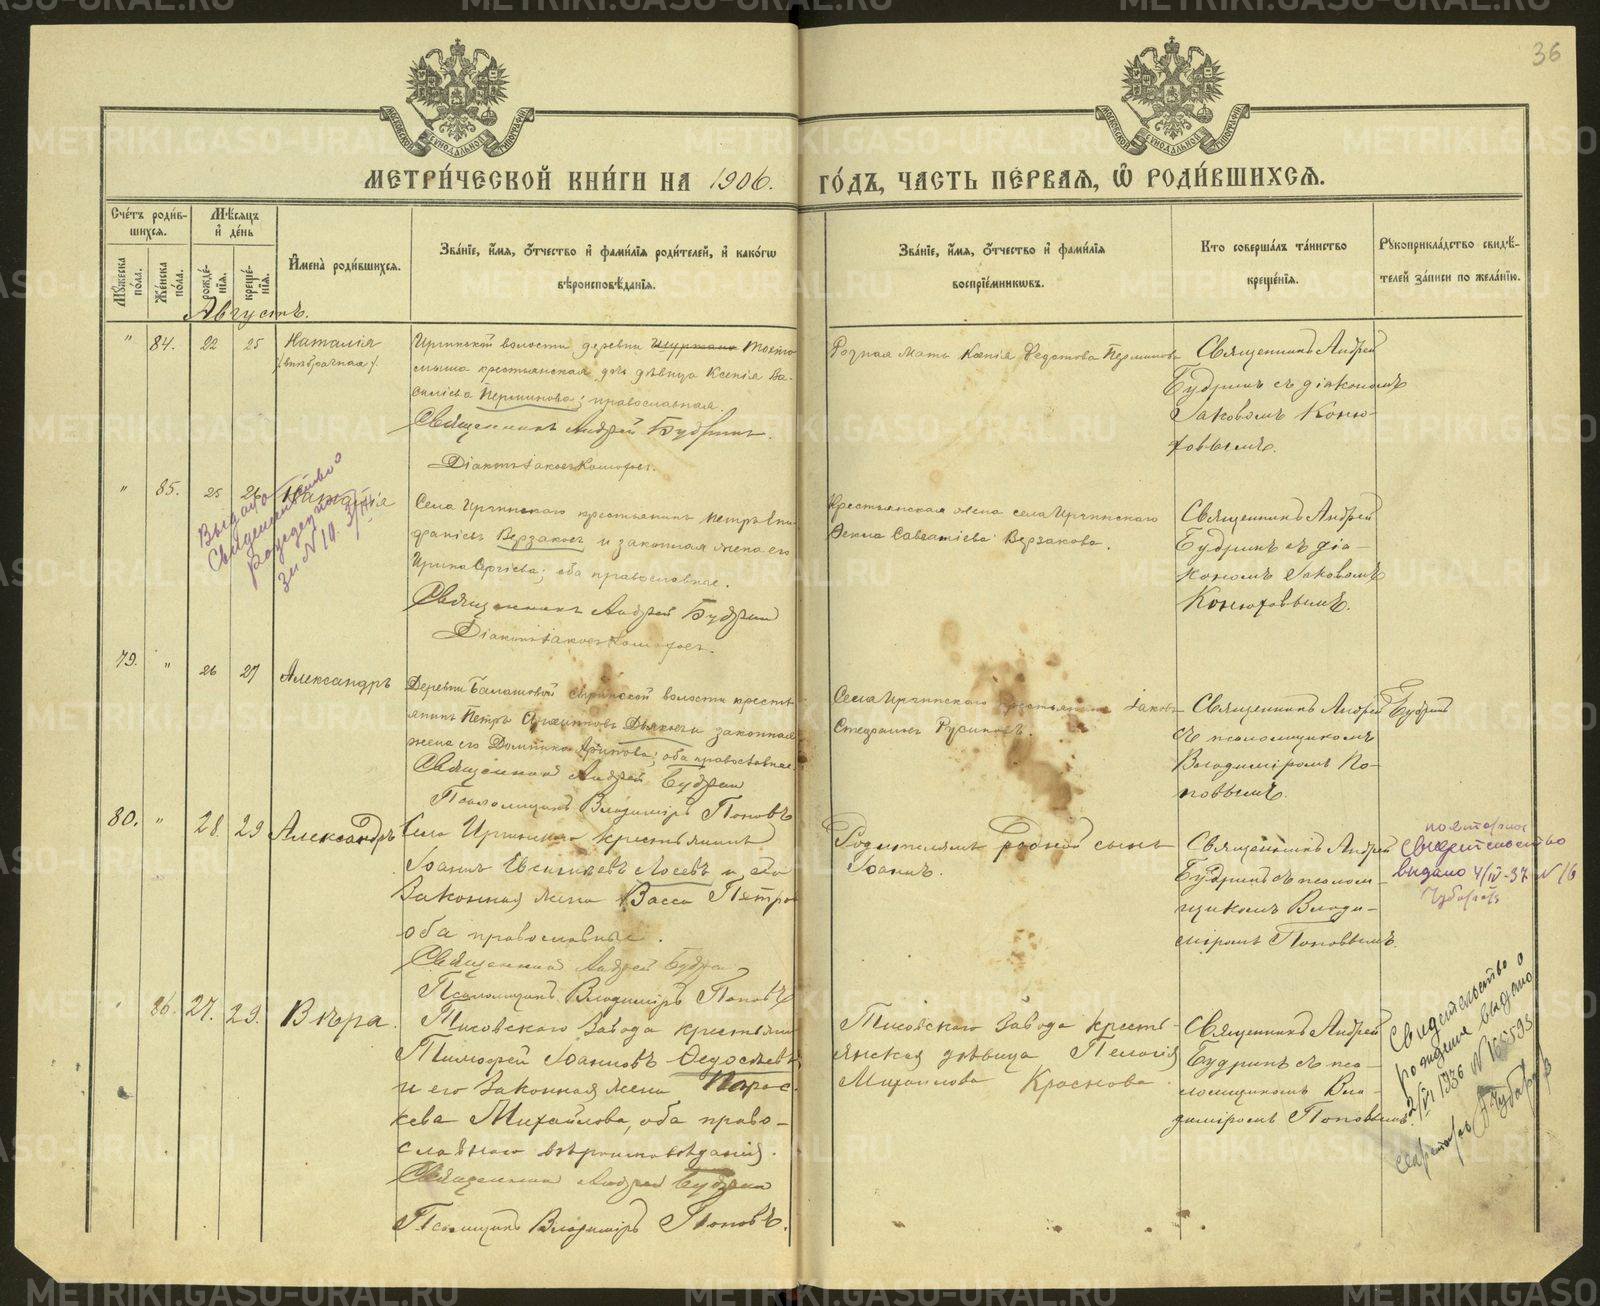 36
МЕТРИ́ЧЕСКОЙ КНИ́ГИ НА 1906. ГО́ДЪ, ЧАСТЬ ПЕ́РВАЯ, Ѽ РОДИ́ВШИХСЯ.
Сче́тъ роди́в-
шихся.
Мѣ́сяцъ
и҆ де́нь
Мꙋ́жеска
по́ла.
Же́нска
по́ла.
рожде́-
нїѧ.
креще́-
нїѧ.
И҆мена̀ роди́вшихся.
Зва́нїе, и҆́мя, ѻ҆́тчество и҆ фами́лїя роди́телей, и҆ како́гѡ
вѣроисповѣ́данїя.
Зва́нїе, и҆́мя, ѻ҆́тчество и҆ фами́лїя
воспрїе́мникѡвъ.
Кто соверша́лъ та́инство
креще́нїя.
Рꙋкоприкла́дство свидѣ́-
телей за́писи по жела́нїю.
Августъ.
" 84. 22 25 Наталія
(внѣбрачная).
Иргинской волости деревни
крестьянская дѣвица Ксенія Ва-
силіева Перминова; православная.
Священникъ Андрей Будринъ.
Діаконъ Іаковъ Конюховъ.
Родная мать Ксенія Федотова Перминова
Священникъ Андрей
Будринъ съ діакономъ
Іаковомъ Коню-
ховымъ.
" 85. 25 26 Наталія
Выдано
Свидетельство о
рождении
за N 10.
Села Иргинскаго крестьянинъ Петръ Епи-
фаніевъ Верзаковъ и законная жена его
Ирина Сергіева; оба православные.
Священникъ Андрей Будрин
Діаконъ Іаковъ Конюховъ.
Крестьянская жена села Иргинскаго
Фекла Савватіева Верзакова.
Священникъ Андрей
Будринъ съ діа-
кономъ Іаковомъ
Конюховымъ.
79. " 26 27 Александръ
Деревни Балашовой волости кресть-
янинъ Петръ Дьяковъ и законная
жена его оба православные.
Священникъ Андрей Будрин
Псаломщикъ Владиміръ Поповъ
Села Иргинскаго крестьянинъ Іаковъ
Стефановъ Русиновъ.
Священникъ Андрей Будринъ
съ псаломщикомъ
Владиміромъ По-
повымъ.
80. " 28. 29 Александръ
Села Иргинскаго крестьянинъ
Іоаннъ Лосевъ и его
законная жена Васса Петрова
оба православные.
Священникъ Андрей Будрин
Псаломщикъ Владиміръ Поповъ
Родителямъ родной сынъ
Іоаннъ.
Священникъ Андрей
Будринъ съ псалом-
щикомъ Влади-
міромъ Поповымъ.
повторное
свидетельство
выдано 4/IV-37 N 16
86. 27. 29. Вѣра.
Тисовскаго Завода крестьянинъ
Тимофей Іоанновъ Ѳедосѣевъ
и его законная жена Парас-
кева Михайлова, оба право-
славнаго вѣроисповѣданія.
Священникъ Андрей Будрин
Псаломщикъ Владиміръ Поповъ.
Тисовскаго завода кресть-
янская дѣвица Пелагія
Михайлова Краснова.
Священникъ Андрей
Будринъ съ пса-
ломщикомъ Вла-
диміромъ Поповымъ.
Свидетельство о
рождении выдано
1936
секретарь
METRIKI.GASO-URAL.RU